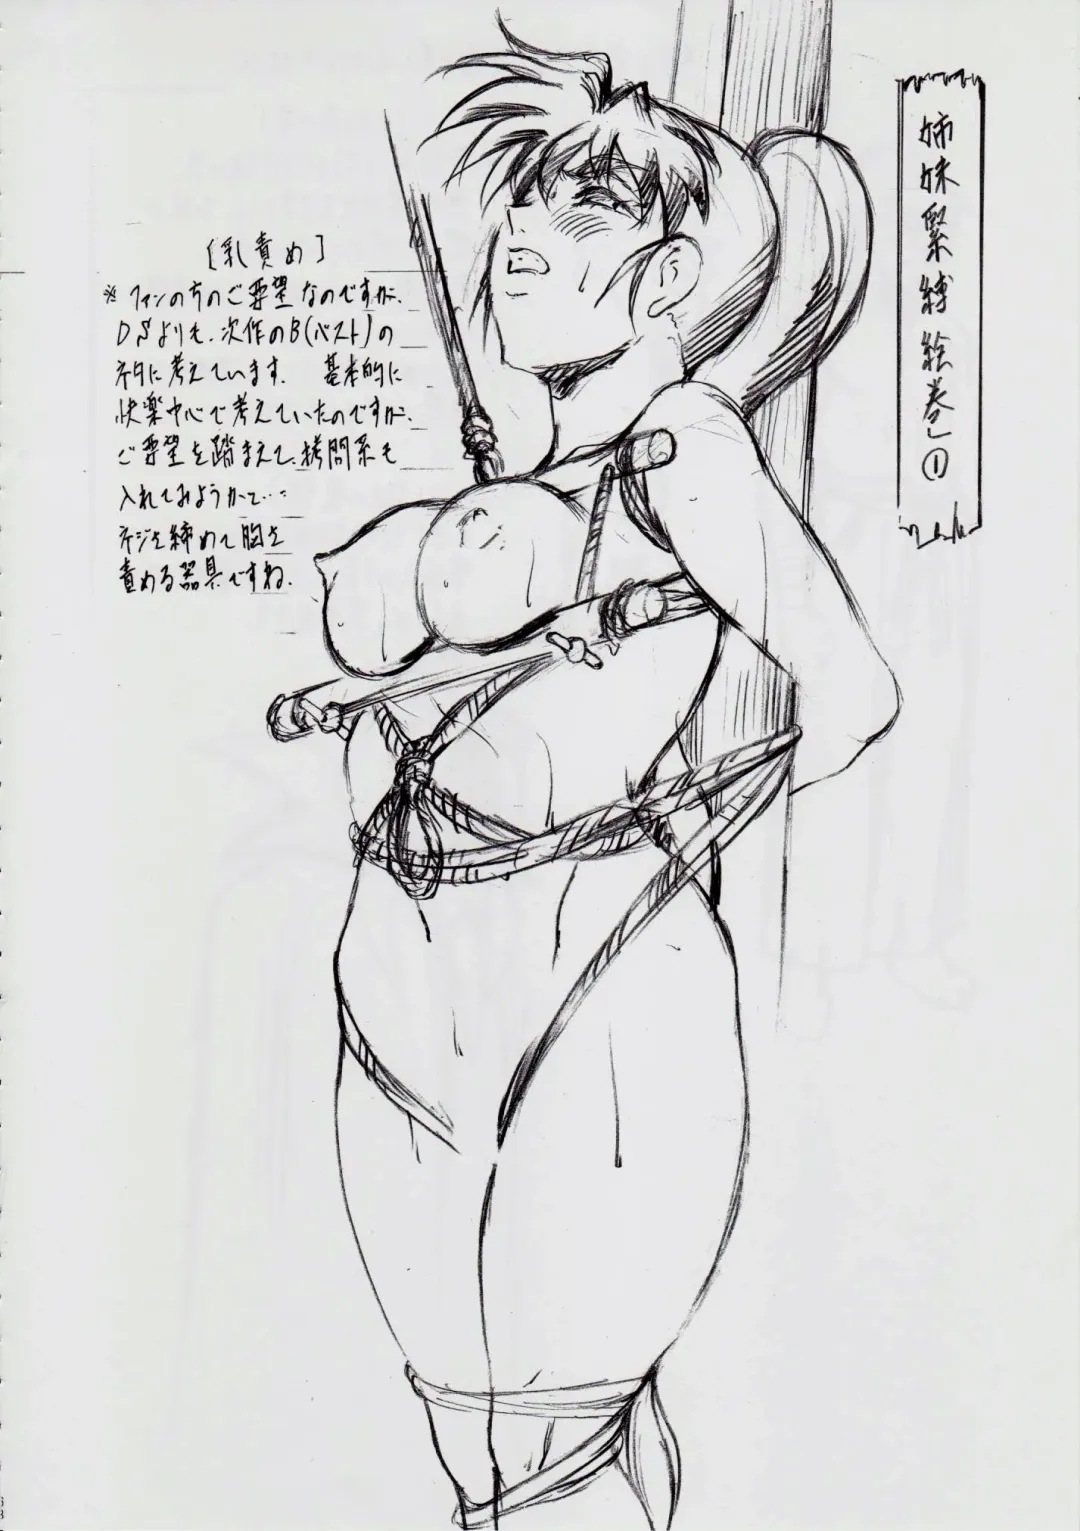 姉妹緊縛絵巻」①
[乳責め]
※ ファンの方のご要望なのですが、
DSよりも、次作のB(ベスト)の
ネタに考えています。 基本的に
快楽中心で考えていたのですが、
ご要望を踏まえて、拷問系も
入れてみようかと…:
ネジを締めて胸を
責める器具ですね。